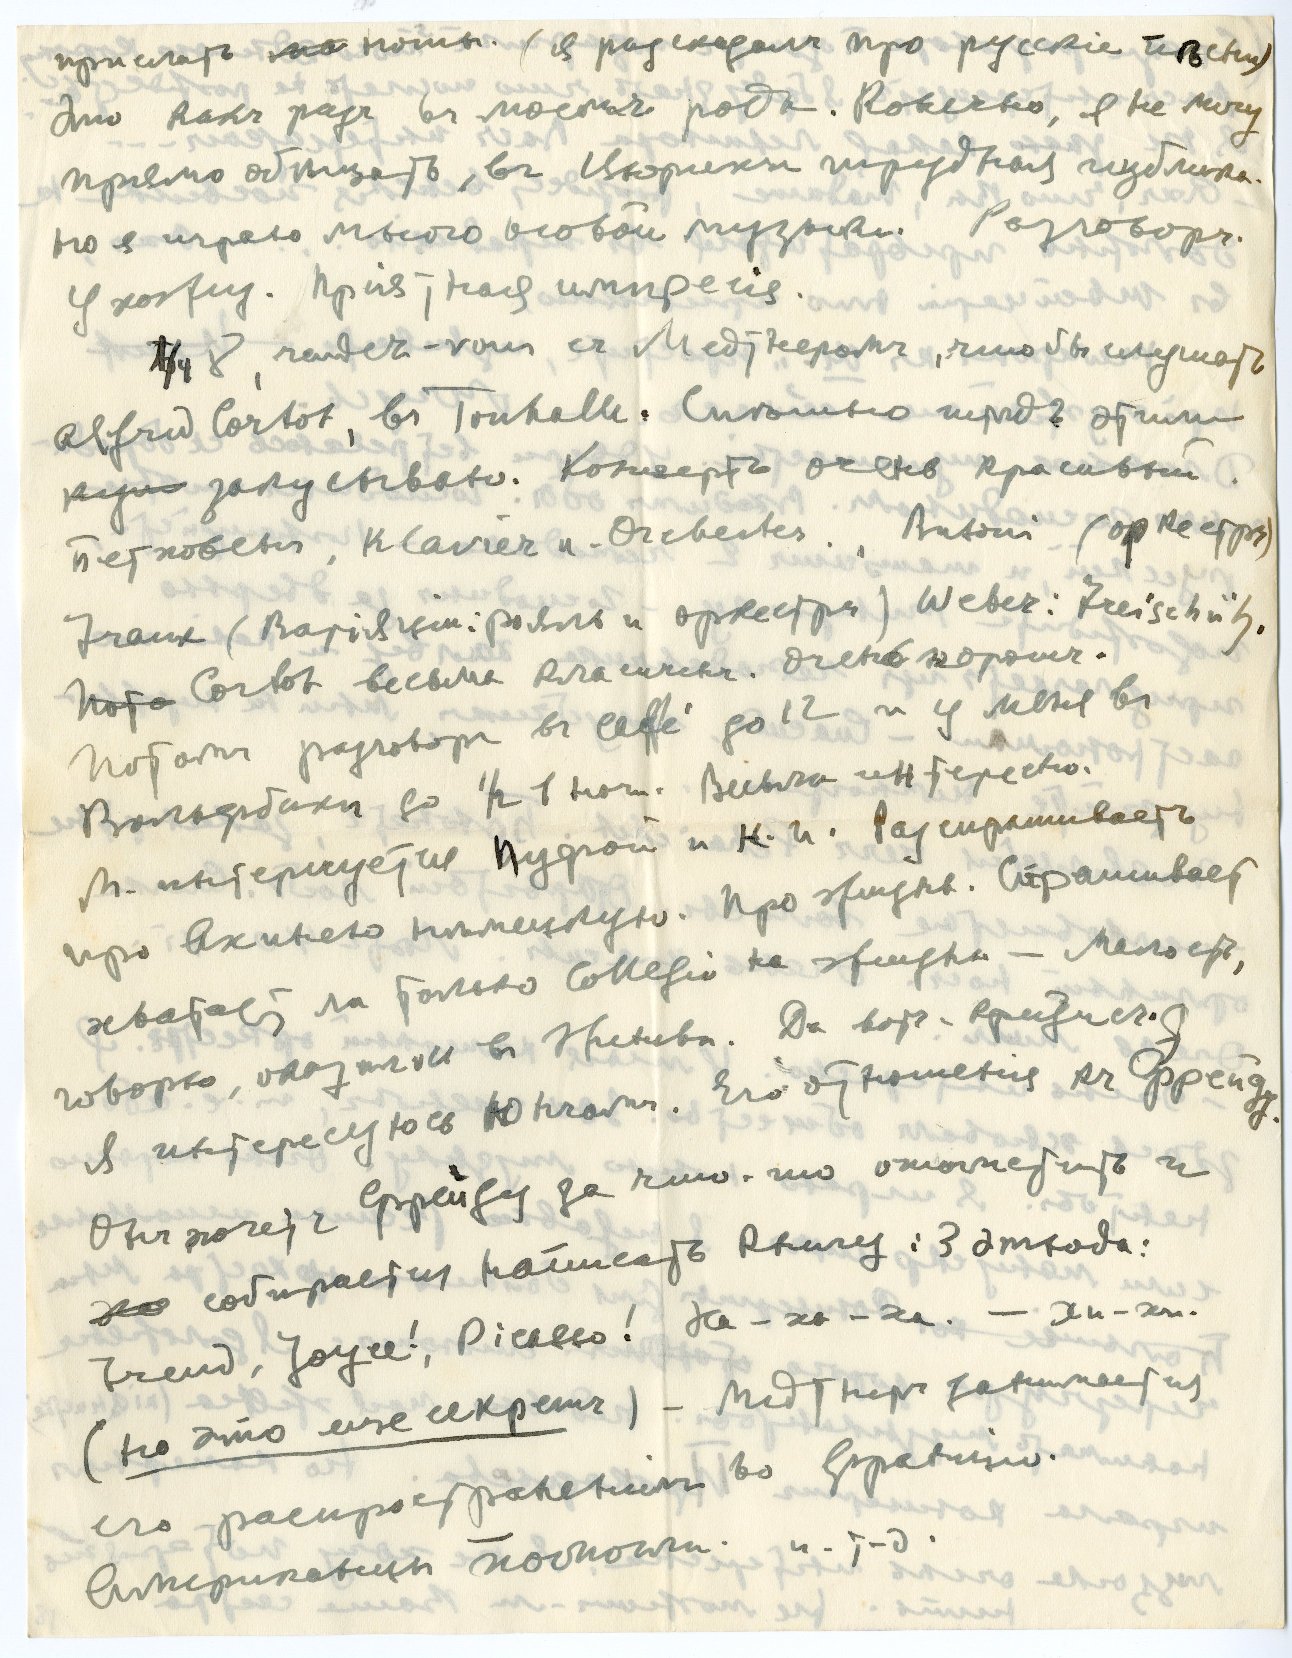 прислать ноты. (я разсказалъ про русскіе пѣсни)
Это какъ разъ въ моемъ родѣ. Конечно, я не могу
прямо обѣщать, въ Цюрихѣ трудная публика.
но я играю много особой музыки. Разговоръ.
Ухожу. Пріятная импресія.
1/4 8, rendez-vous съ Метнеромъ, чтобы слушать
Alfred Cortot, въ Tonhalle. Сильно предъ этимъ
закусываю. Концертъ очень красивый.
Бетховенъ, Klavier u. Orchester, (оркестръ)
Frank (Варіяціи: рояль и оркестръ) Weber: Freischütz.
Cortot весьма классикъ. Очень хорошъ.
Потомъ разговоръ въ Caffé до 12 и у меня въ
до 1/2 1 ночи. Весьма интересно.
М. интересуется и к. и. Разспрашиваетъ
про нѣмецкую. Про жизнь. Спрашиваетъ
хватаетъ ли только Collegio на жизнь — Малость,
говорю, въ Женевѣ. Да вотъ - кризисъ.
Я интересуюсь Юнгомъ. Его отношенія къ Фрейду.
Онъ хочетъ Фрейду за что-то отомстить и
собирается написать книгу: 3 этюда:
Freud, Joyce!, Picasso! Ха-ха-ха. — хи-хи.
(но это еще секретъ) — Метнеръ занимается
его распространеніемъ во Франціи.
Американцы и-т-д.